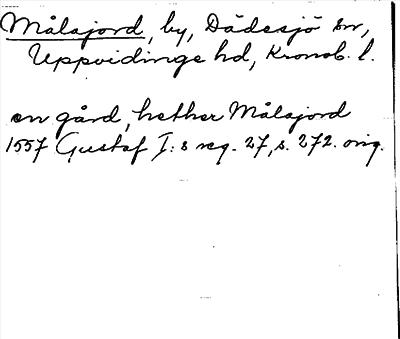 Målajord, by, Dädesjö sn,
Uppvidinge hd, Kronob. l.
en gård, hether Målajord
1557 Gustaf I:s reg. 27, s. 272. orig.